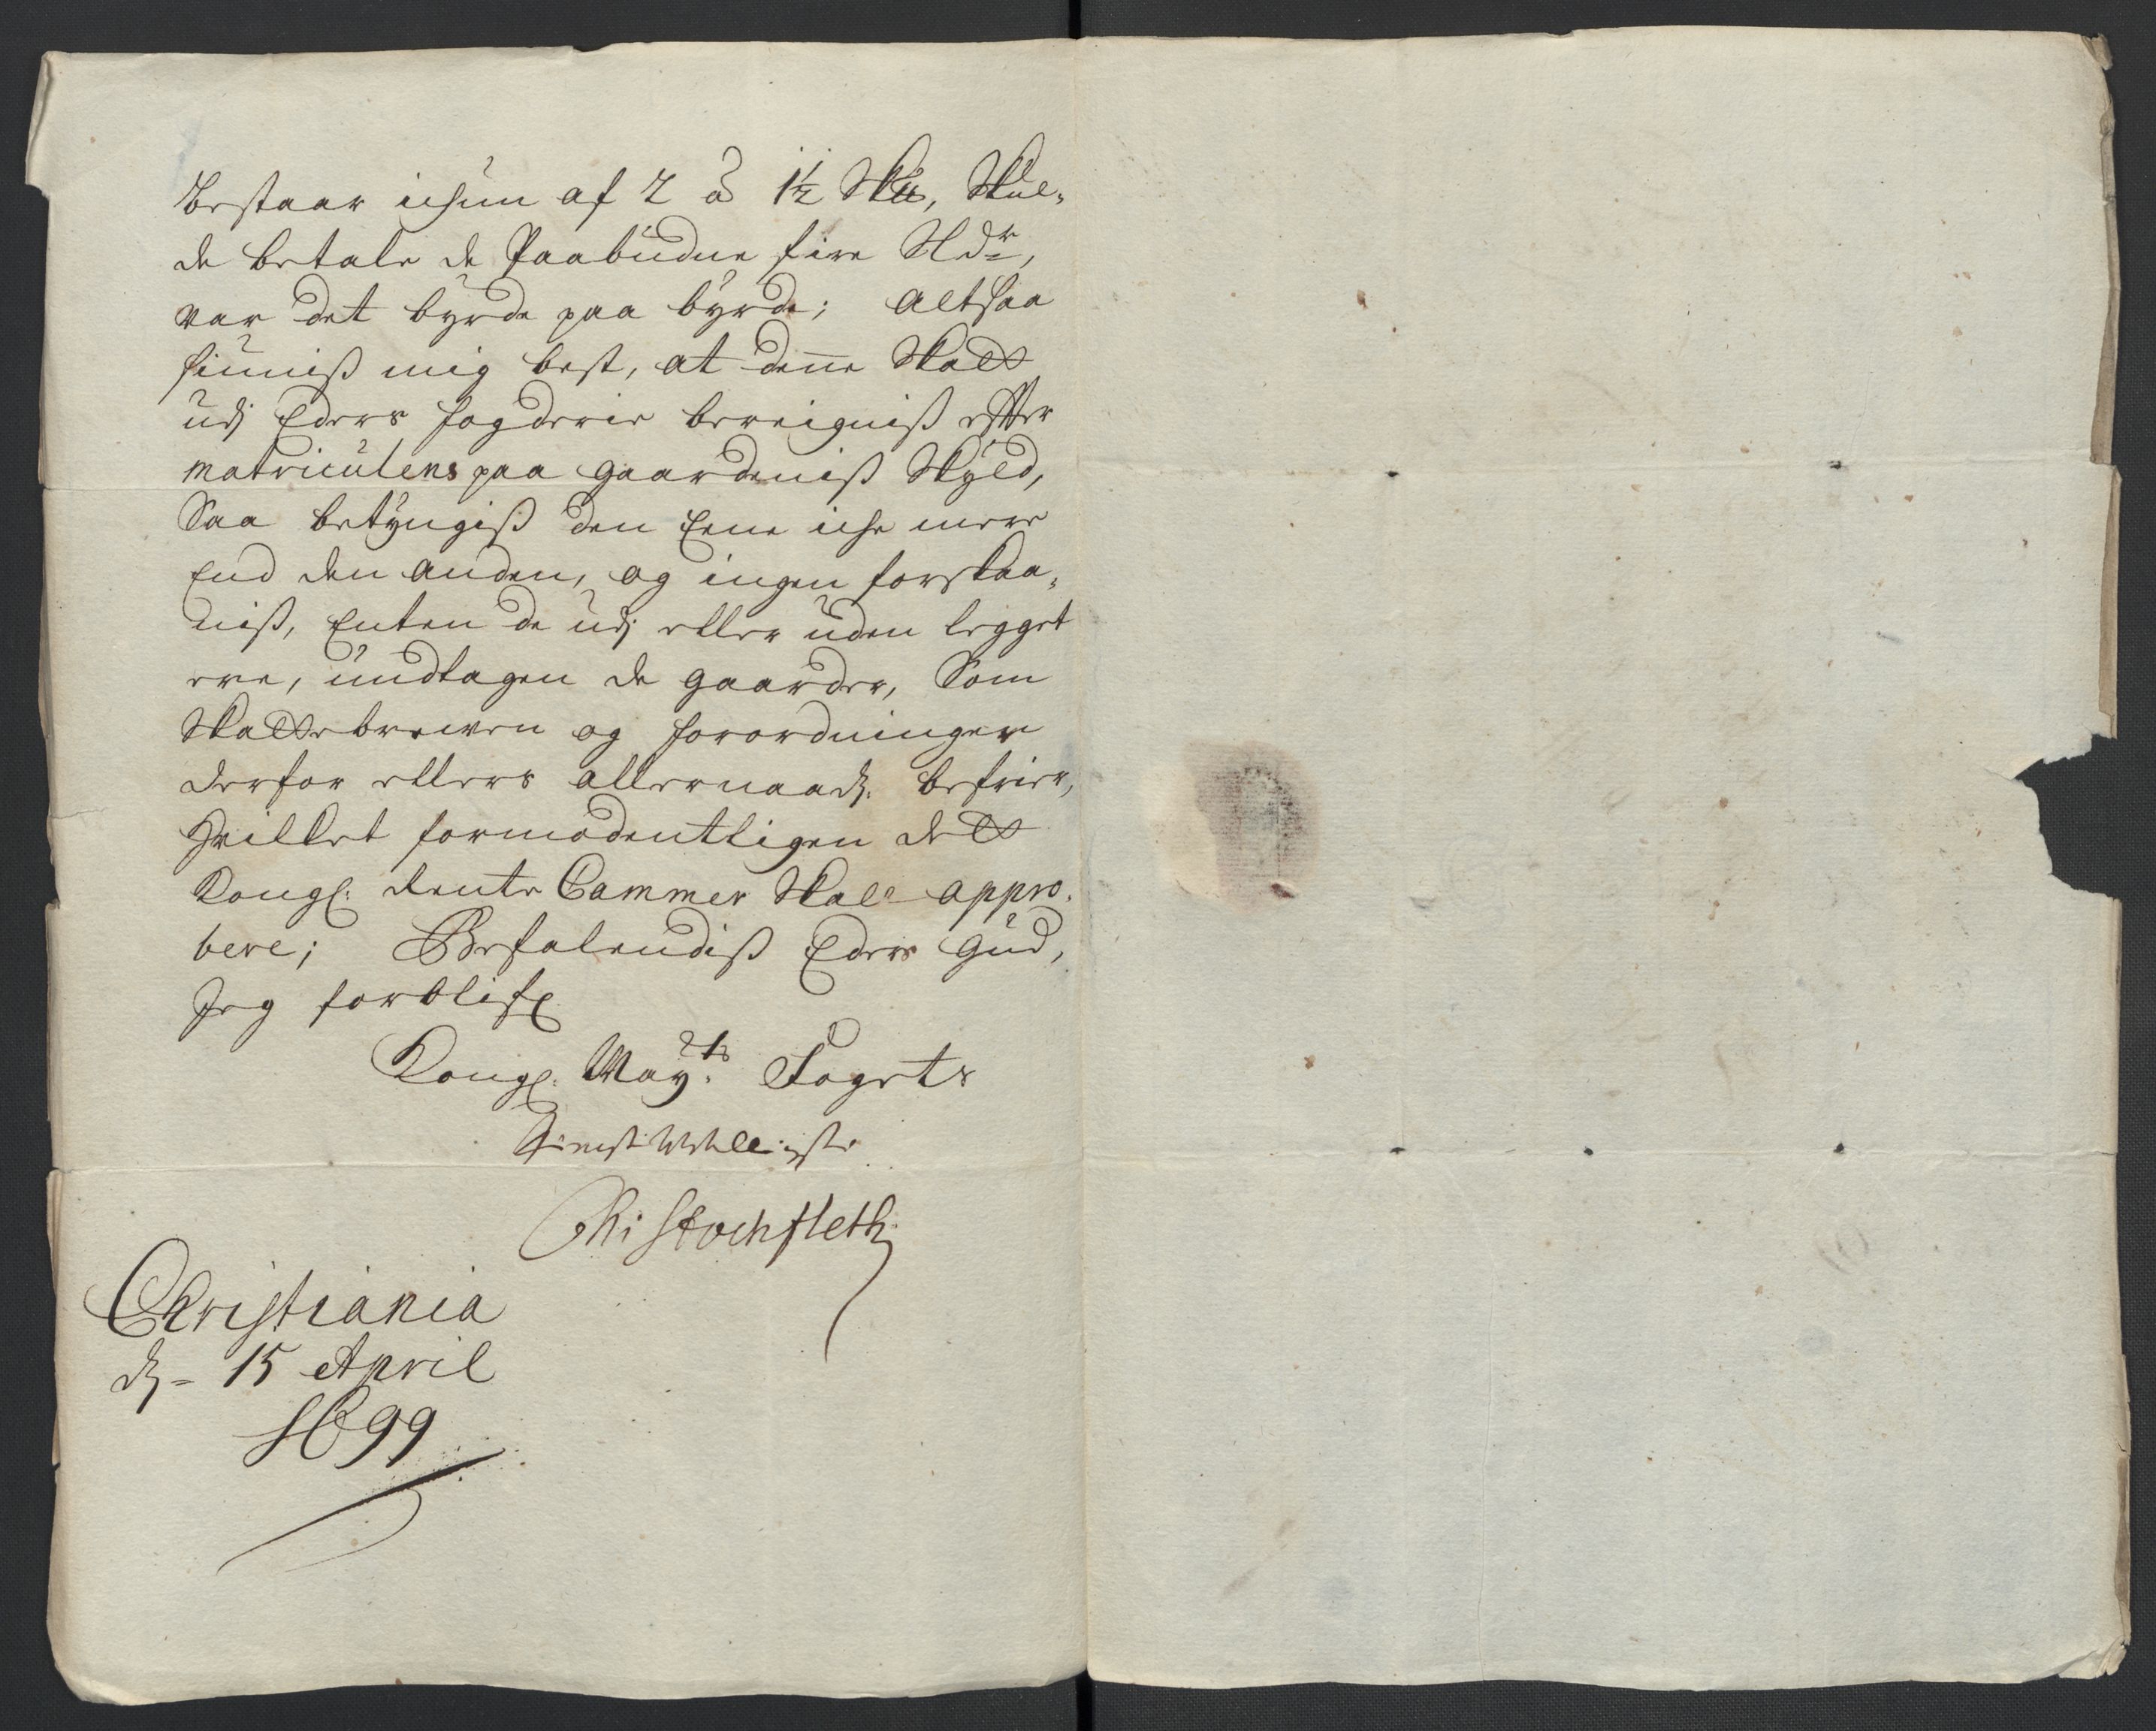 bestaar ichun af 2 à 1½ Skll, Skul-
de betale de Paabudne fire Rdr,
var det byrde paa byrde; altsaa
siuniß mig best, at denne Skatt
udj Eders fogderie bereigniß effter
matriculens paa gaardeniß Skyld,
Saa betyngiß den Eene iche mere
End den anden, og ingen forskaa-
niß, Enten de udj eller uden legget
ere, undtagen de gaarder, Som
Skattebrewen og forordninger
derfor ellers allernaadg: befrier,
Hvilket formodentligen dett
Kongl: Rente Cammer Skal appro-
bere; Befalendiß Eders Gud,
Jeg forblifr
Kongl: May:ts Fogets
Tienstwilligste
Chr: Stochfleth
Christiania
dn= 15 April
1699